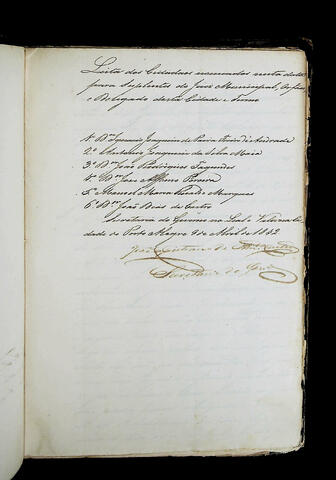 Lista dos Cidadãos nomeados nesta data
para Suplentes do Juiz Municipal, Orfãos
e Delegado desta Cidade e Termo
1º Dor Ignacio Joaquim de Paiva Freire de Andrade
2º Joaquim da Silva Maia
3º Dor José Rodrigues Fagundes
4º Dor José Affonso Pereira
5º Manoel Maria Marques
6º Dor João Braz de Castro
Secretaria do Governo na Leal e Valorosa Ci-
dade de Porto Alegre 9 de Abril de 1842
José
Secretario do Govº